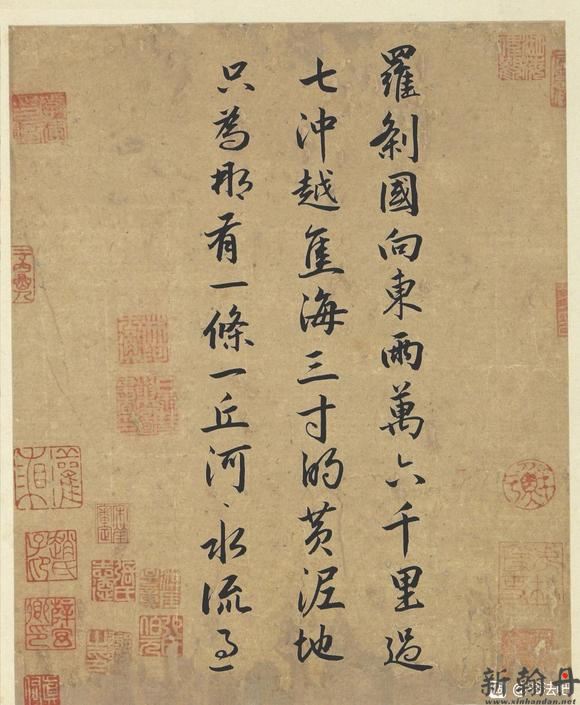 羅剎國向東兩萬六千里過
七沖越焦海三寸的黃泥地
只為那有一條一丘河、水流過
新翰丹
www.xinhandan.net